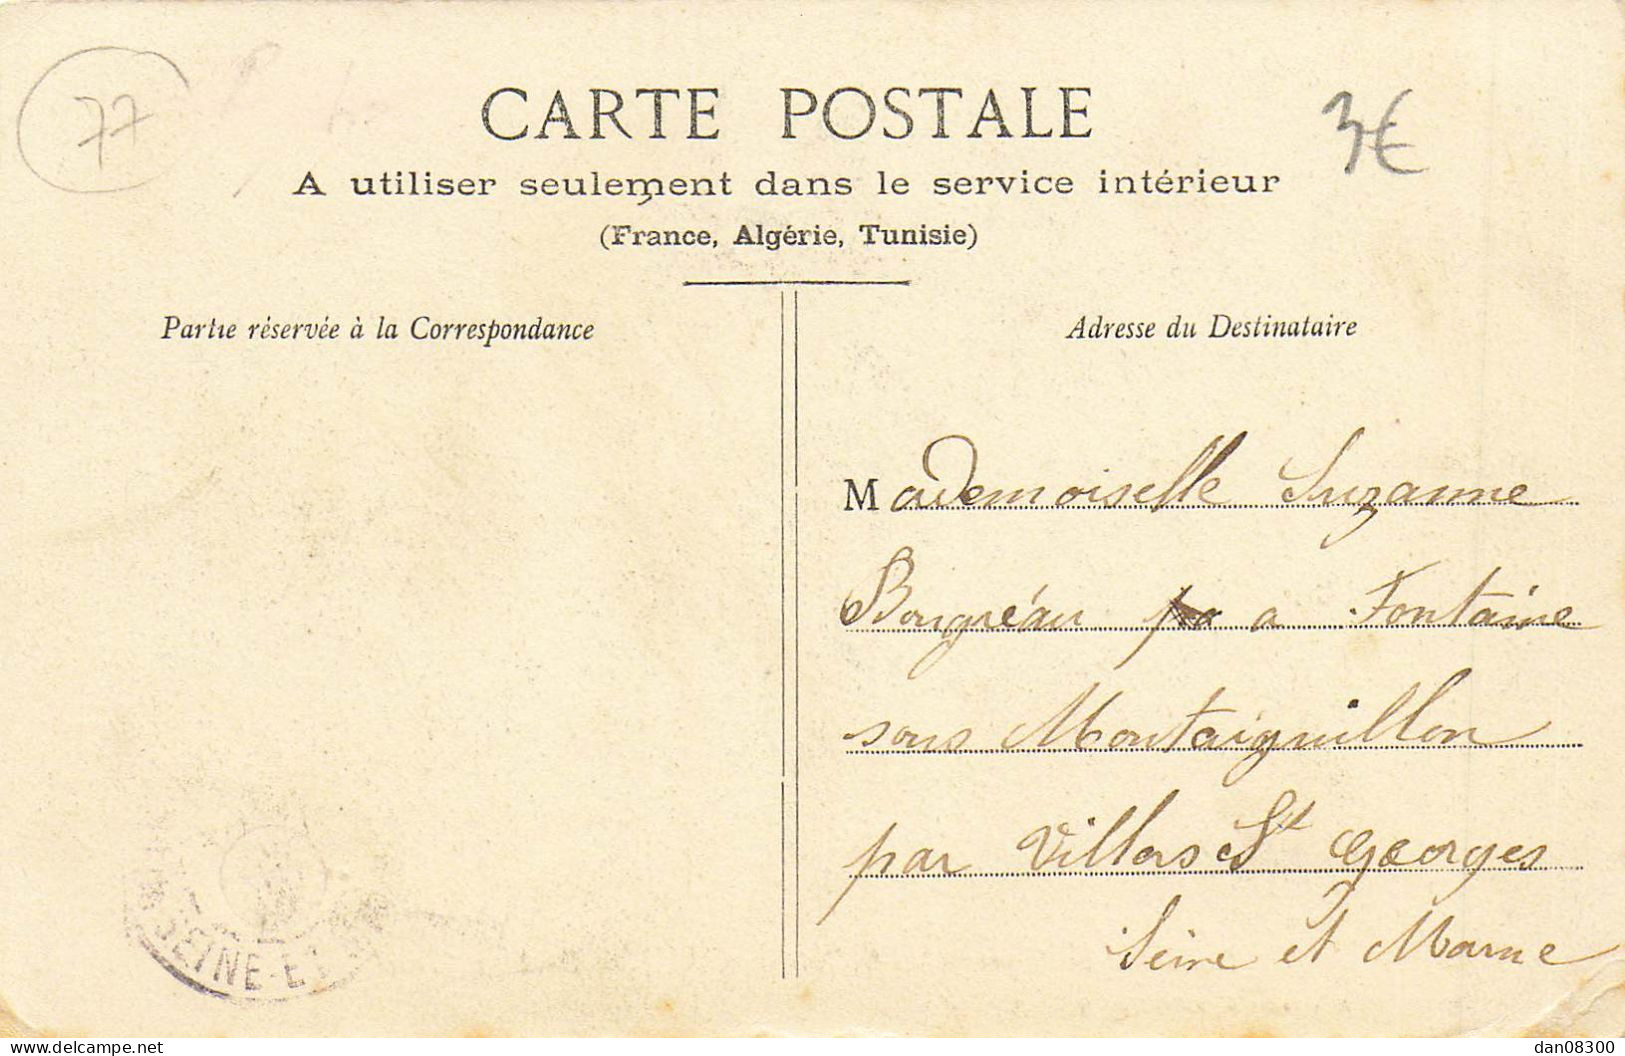 77
CARTE POSTALE
3€
A utiliser seulement dans le service intérieur
(France, Algérie, Tunisie)
Partie réservée à la Correspondance
Adresse du Destinataire
Mademoiselle Suzanne
Bougréau a Fontaine
sous Montaiguillon
par Villers St Georges
Seine et Marne
SEINE-ET
dan08300